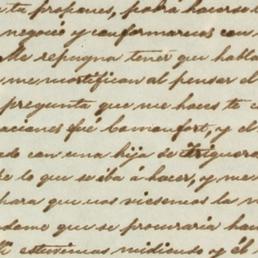 tu propones, podrá hacerse
negocio y conformarnos con
Me repugna tener que habla
me mortifican al pensar el
pregunta que me haces te c
aciones fué Comonfort, y el
ado con una hija de
re lo que se iba á hacer, y me
para que nos viésemos la
dome que se procuraria hac
estuvimos midiendo y él